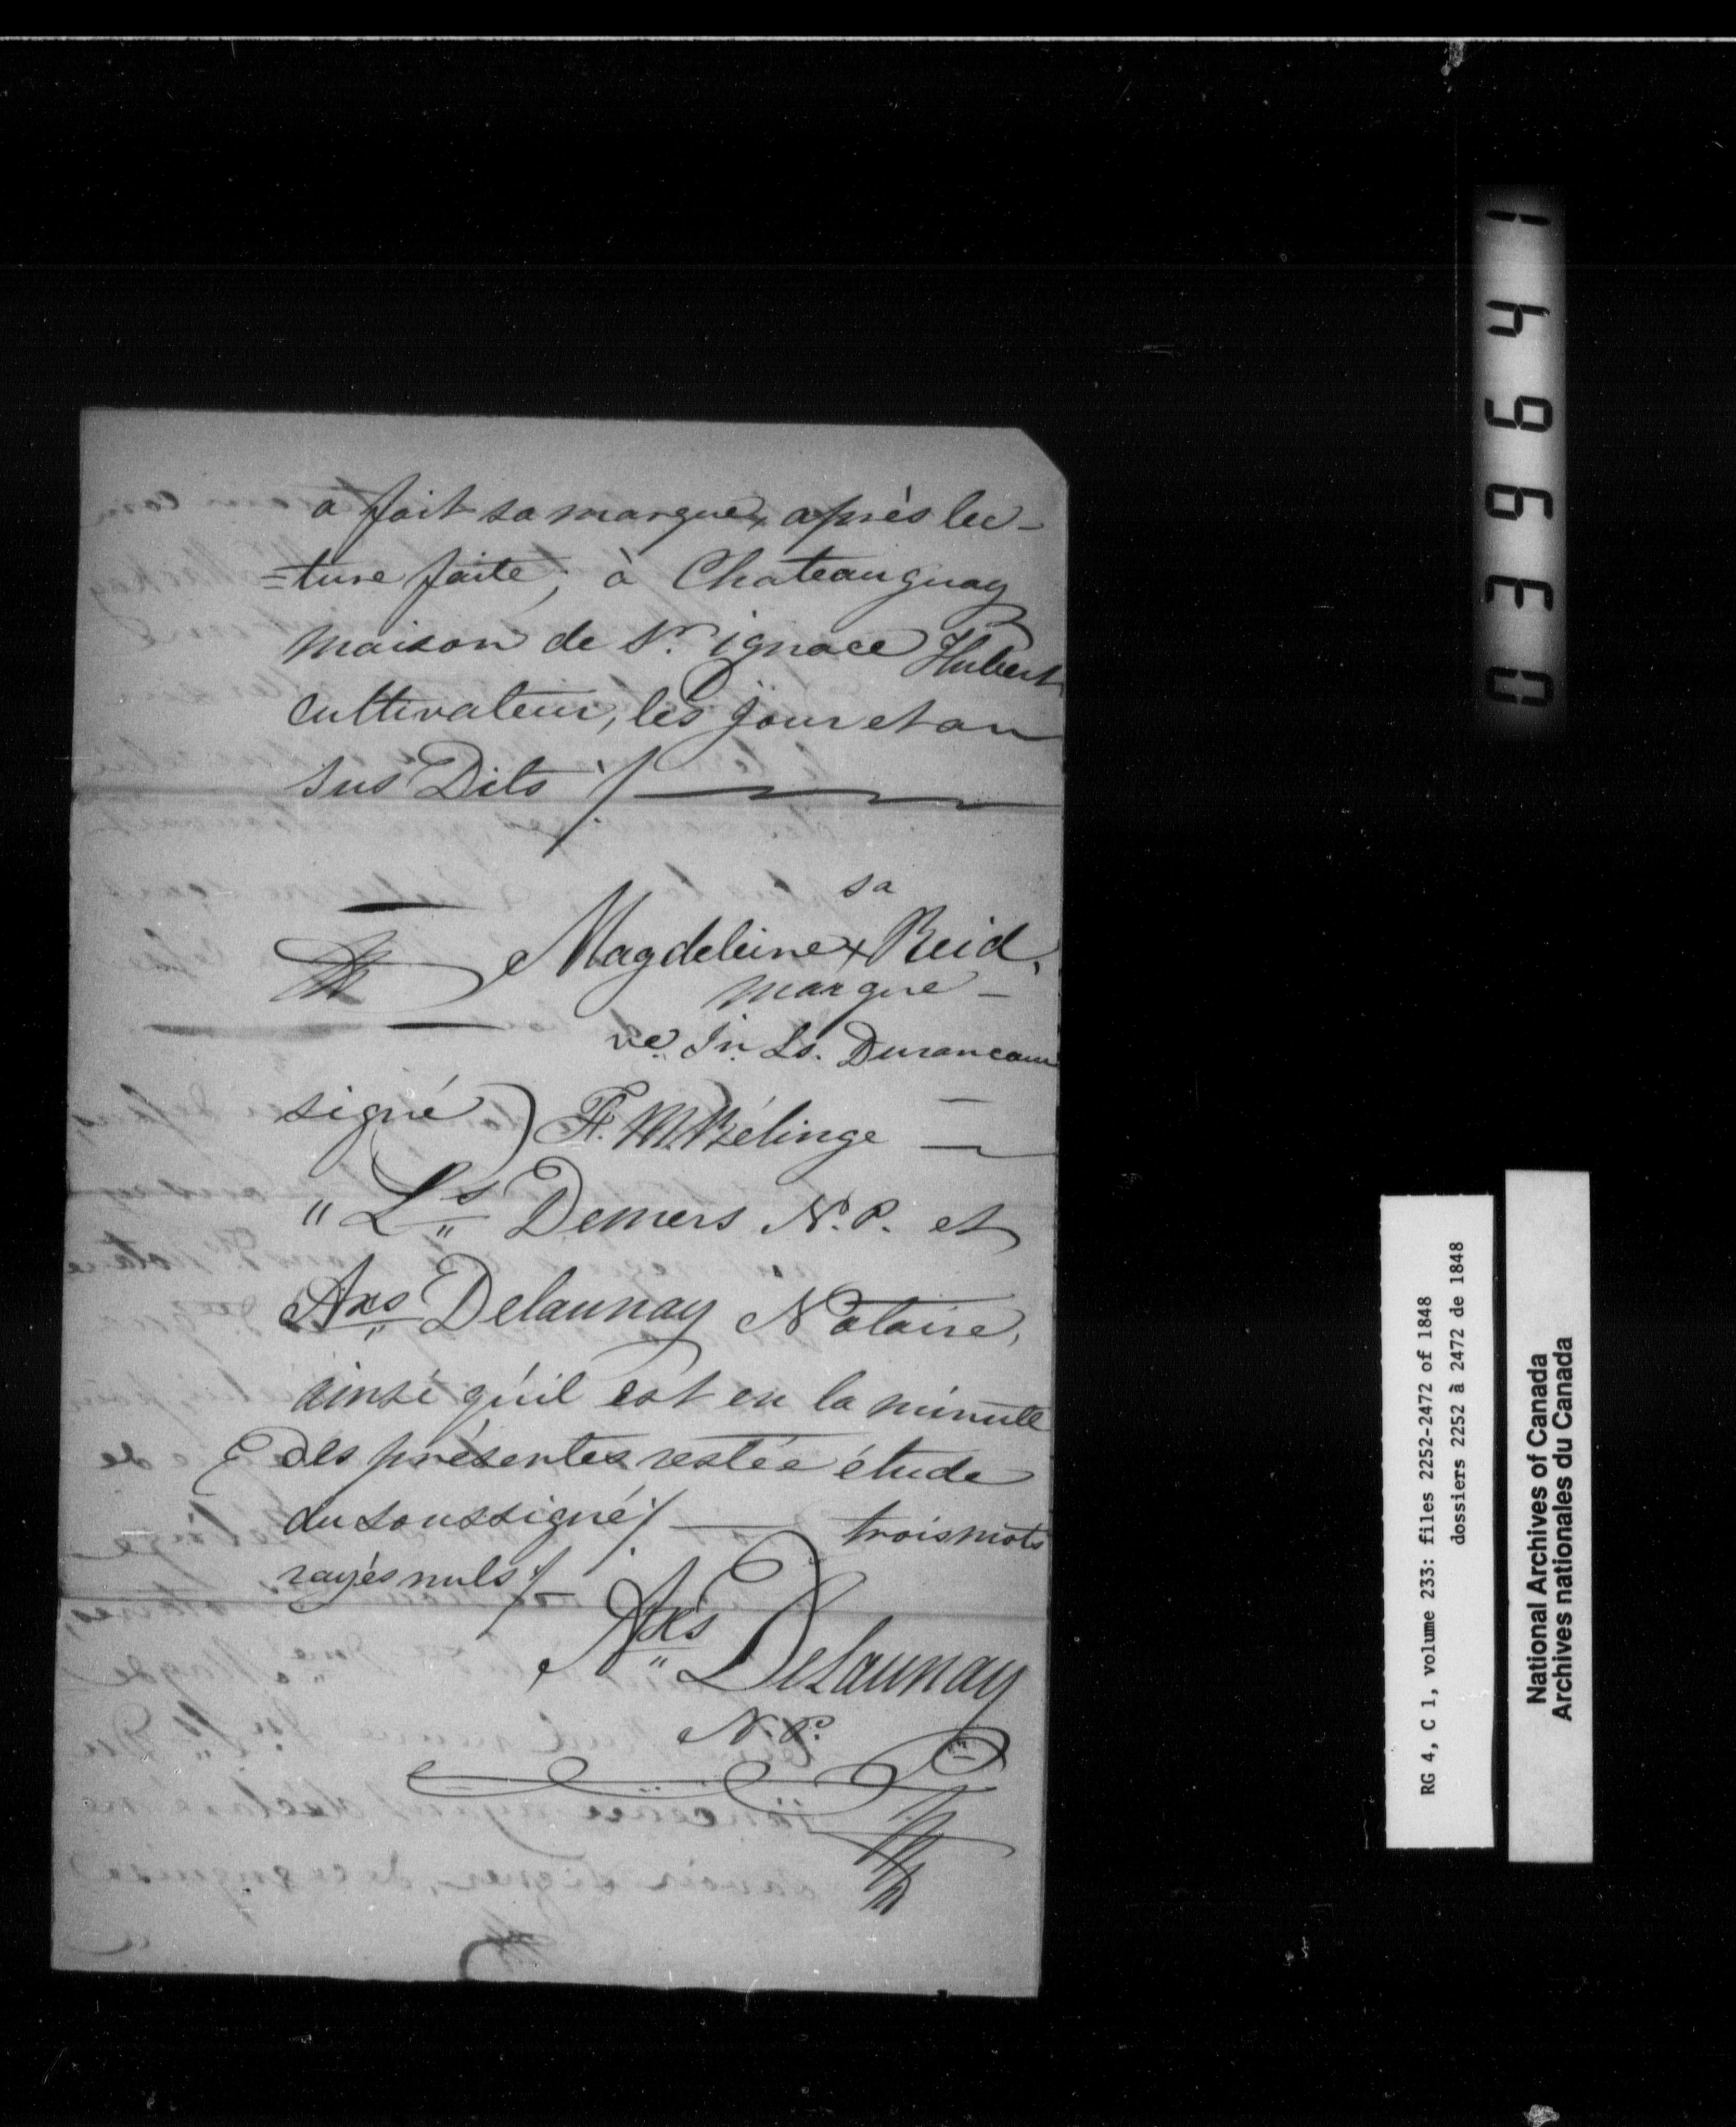 a fait sa marque, après lec-
=ture faite, à Chateauguay
maison de Sr. ignace Hubert
cultivateur, les jour et an
sus Dits ./.
sa
Magdeleine + Reid,
marque -
ve. Jn. Ls. Duranceau
signé) Ft. M. Bélinge
" Ls Demers N.P. et
Axs Delaunay Notaire,
ainsi qu'il est en la minute
des présentes restée étude
du soussigné ./. trois mots
rayés nuls ./.
Axs Delaunay
N.P.
039641
RG 4, C 1, volume 233: files 2252-2472 of 1848
dossiers 2252 à 2472 de 1848
National Archives of Canada
Archives nationales du Canada